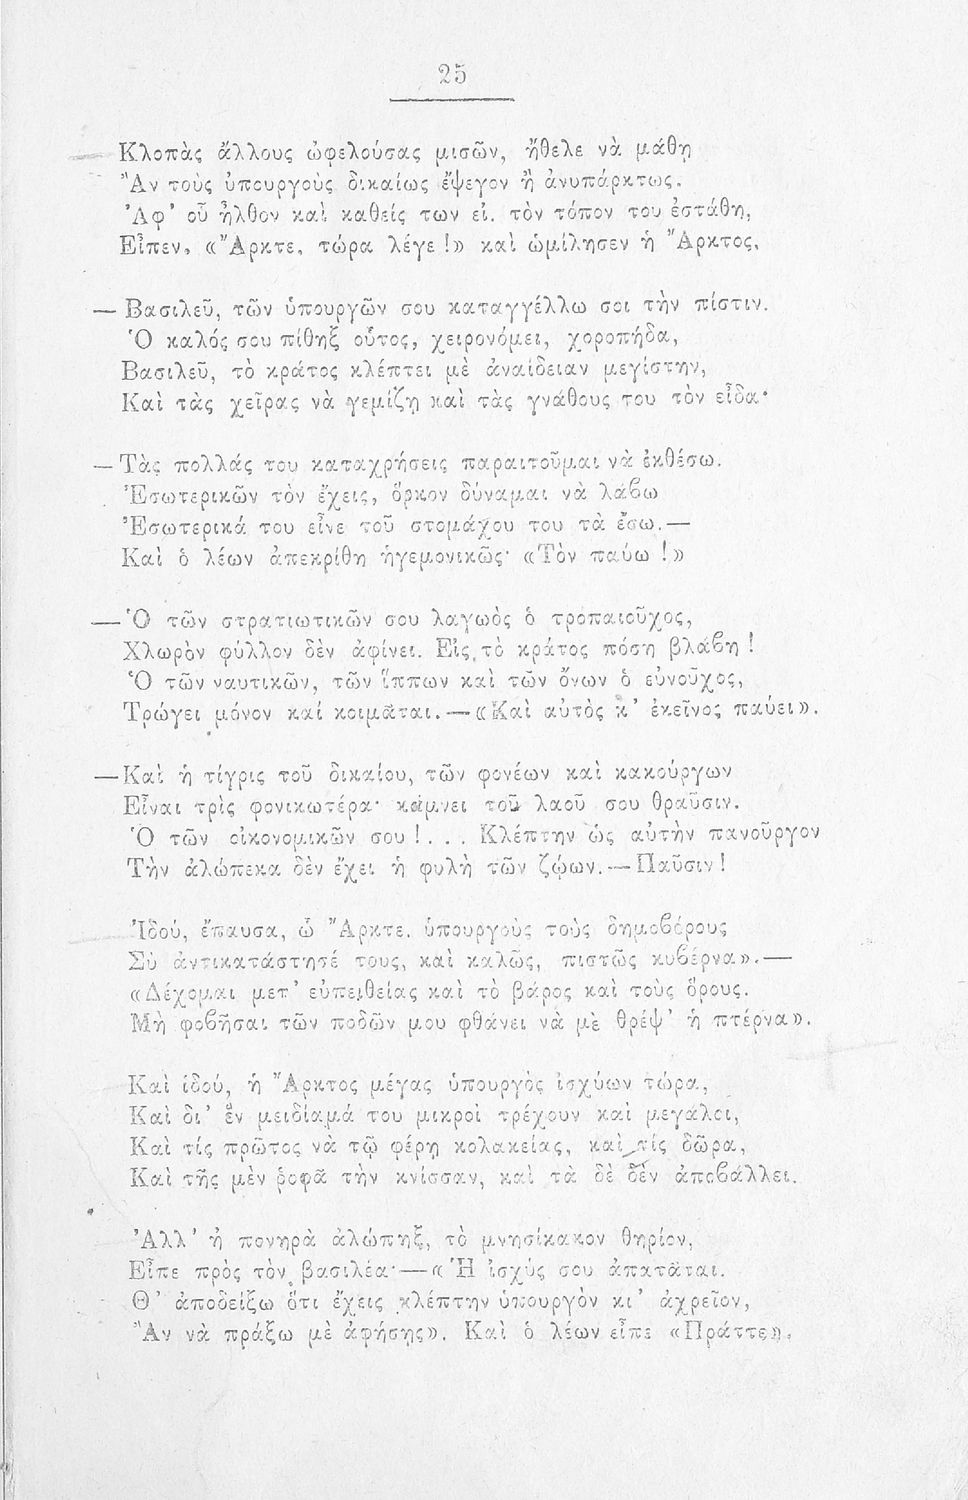 25
Κλοπὰς ἄλλους ὠφελούσας μισῶν, ἤθελε νὰ μάθῃ
Ἂν τοὺς ὑπουργοὺς δικαίως ἔψεγον ἢ ἀνυπάρκτως.
Ἀφ' οὗ ἦλθον καὶ καθείς των εἰ. τὸν τόπον του ἐστάθη,
Εἶπεν, «Ἄρκτε, τώρα λέγε!» καὶ ὡμίλησεν ἡ Ἄρκτος,
— Βασιλεῦ, τῶν ὑπουργῶν σου καταγγέλλω σοι τὴν πίστιν.
Ὁ καλός σου πίθηξ οὗτος, χειρονόμει, χοροπήδα,
Βασιλεῦ, τὸ κράτος κλέπτει μὲ ἀναίδειαν μεγίστην,
Καὶ τὰς χεῖρας νὰ γεμίζῃ καὶ τὰς γνάθους του τὸν εἶδα·
— Τὰς πολλάς του καταχρήσεις παραιτοῦμαι νὰ ἐκθέσω.
Ἐσωτερικῶν τὸν ἔχεις, ὅρκον δύναμαι νὰ λάβω
Ἐσωτερικά του εἶνε τοῦ στομάχου του τὰ ἔσω.—
Καὶ ὁ λέων ἀπεκρίθη ἡγεμονικῶς· «Τὸν παύω!»
— Ὁ τῶν στρατιωτικῶν σου λαγωὸς ὁ τροπαιοῦχος,
Χλωρὸν φύλλον δὲν ἀφίνει. Εἰς τὸ κράτος πόση βλάβη!
Ὁ τῶν ναυτικῶν, τῶν ἵππων καὶ τῶν ὄνων ὁ εὐνοῦχος,
Τρώγει μόνον καί κοιμᾶται.—«Καὶ αὐτὸς κ' ἐκεῖνος παύει».
— Καὶ ἡ τίγρις τοῦ δικαίου, τῶν φονέων καὶ κακούργων
Εἶναι τρὶς φονικωτέρα· κάμνει τοῦ λαοῦ σου θραῦσιν.
Ὁ τῶν οἰκονομικῶν σου!... Κλέπτην ὡς αὐτὴν πανοῦργον
Τὴν ἀλώπεκα δὲν ἔχει ἡ φυλὴ τῶν ζῴων.—Παῦσιν!
Ἰδού, ἔπαυσα, ὦ Ἄρκτε, ὑπουργοὺς τοὺς δημοβόρους
Σὺ ἀντικατάστησέ τους, καὶ καλῶς, πιστῶς κυβέρνα».—
«Δέχομαι μετ' εὐπειθείας καὶ τὸ βάρος καὶ τοὺς ὅρους.
Μὴ φοβῆσαι τῶν ποδῶν μου φθάνει νὰ μὲ θρέψ' ἡ πτέρνα».
Καὶ ἰδού, ἡ Ἄρκτος μέγας ὑπουργὸς ἰσχύων τώρα,
Καὶ δι' ἓν μειδίαμά του μικροὶ τρέχουν καὶ μεγάλοι,
Καὶ τίς πρῶτος νὰ τῷ φέρῃ κολακείας, καὶ τίς δῶρα,
Καὶ τῆς μὲν ῥοφᾶ τὴν κνίσσαν, καὶ τὰ δὲ δὲν ἀποβάλλει.
Ἀλλ' ἡ πονηρὰ ἀλώπηξ, τὸ μνησίκακον θηρίον,
Εἶπε πρὸς τὸν βασιλέα·—«Ἡ ἰσχύς σου ἀπατᾶται.
Θ' ἀποδείξω ὅτι ἔχεις κλέπτην ὑπουργὸν κι' ἀχρεῖον,
Ἂν νὰ πράξω μὲ ἀφήσῃς». Καὶ ὁ λέων εἶπε «Πράττε».